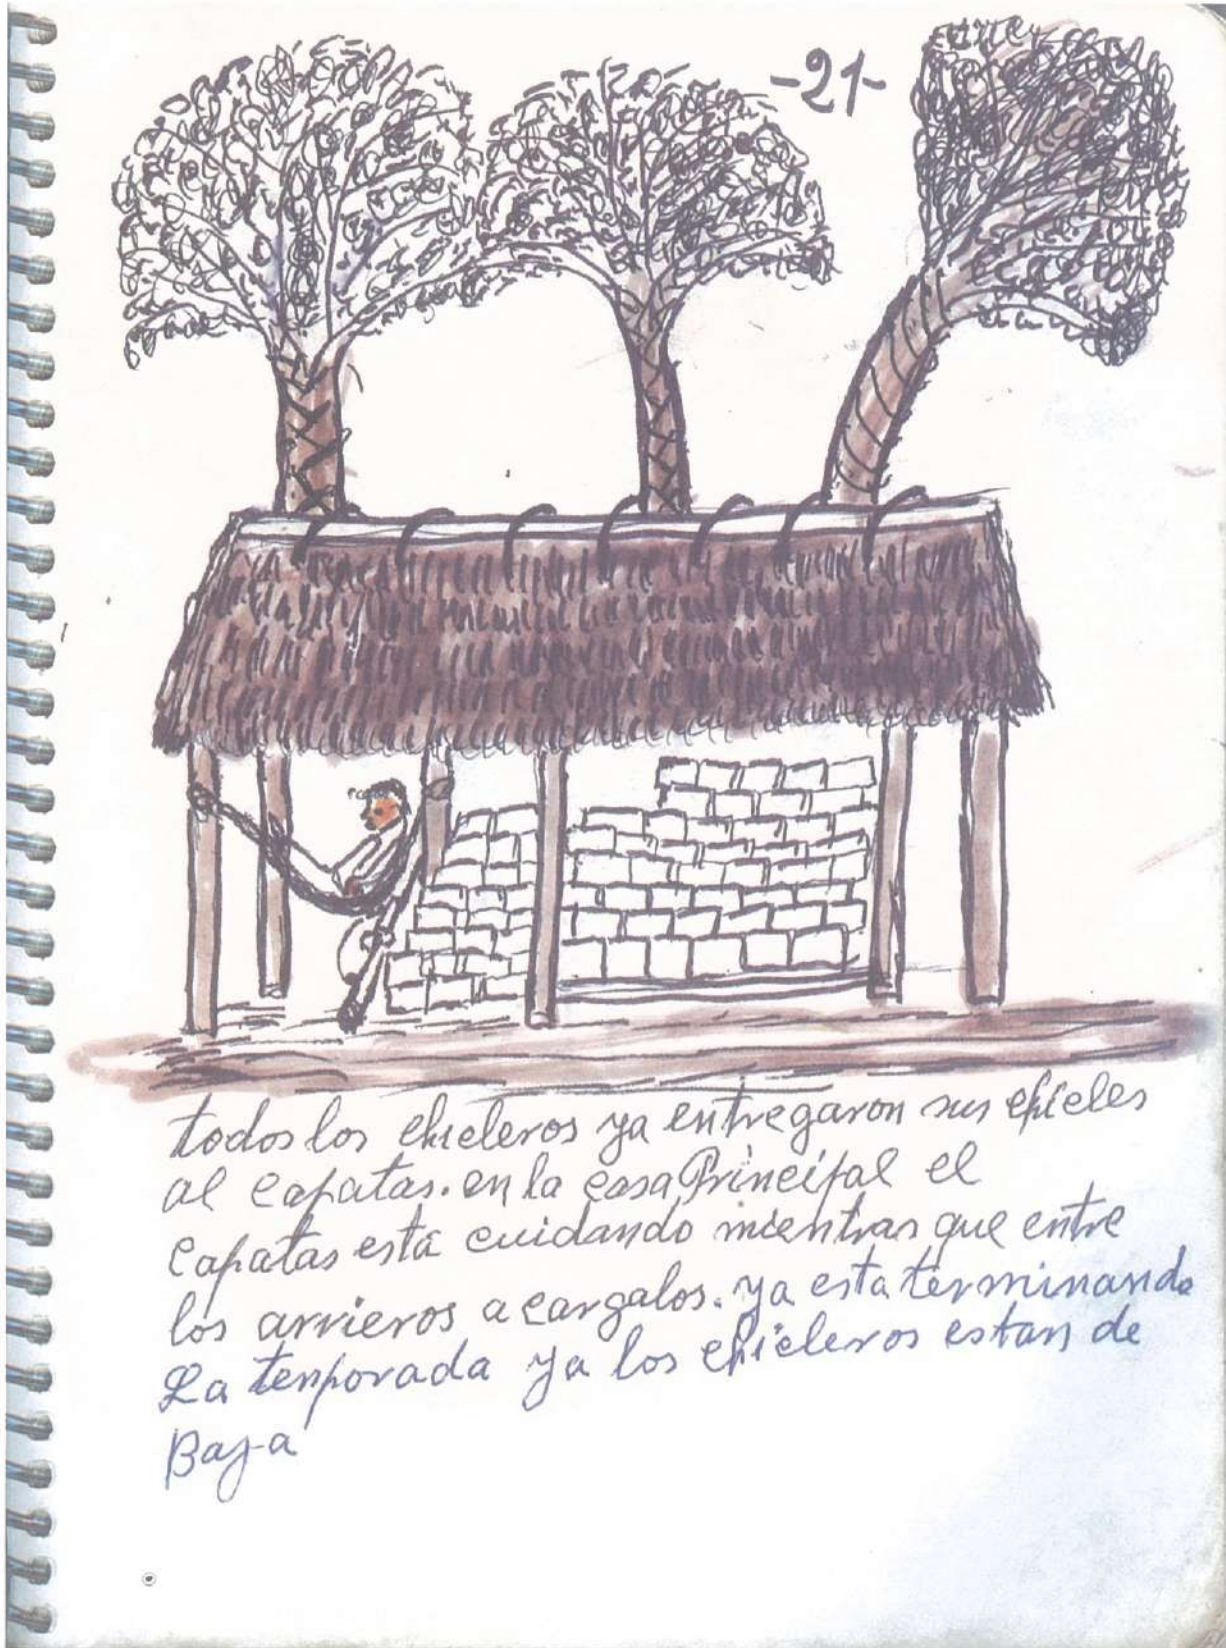 -21-
todos los chicleros ya entregaron sus chicles
al capatas. en la casa Principal el
capatas está cuidando mientras que entre
los arrieros a cargalos. ya esta terminando
La temporada ya los chicleros estan de
Baja